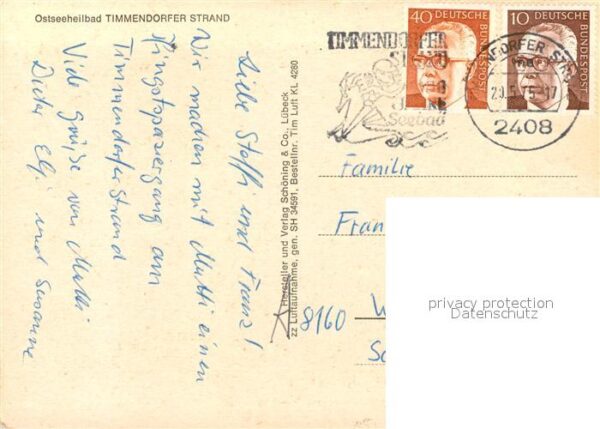 Ostseeheilbad TIMMENDORFER STRAND
Liebe Steffi und Franz!
Wir machen mit Mutti einen
Pfingstspaziergang am
Timmendorfer Strand
Viele Grüße von Mutti
Dieter Elfi und Susanne
Hersteller und Verlag Schöning & Co., Lübeck
zz Luftaufnahme, gen. SH 34591, Bestellnr. Tim Luft KL 4280
TIMMENDORFER
STRAND
Seebad
40 DEUTSCHE BUNDESPOST
10 DEUTSCHE BUNDESPOST
20.5.75-17
2408
Familie
Fran
8160 W
Sc
privacy protection
Datenschutz